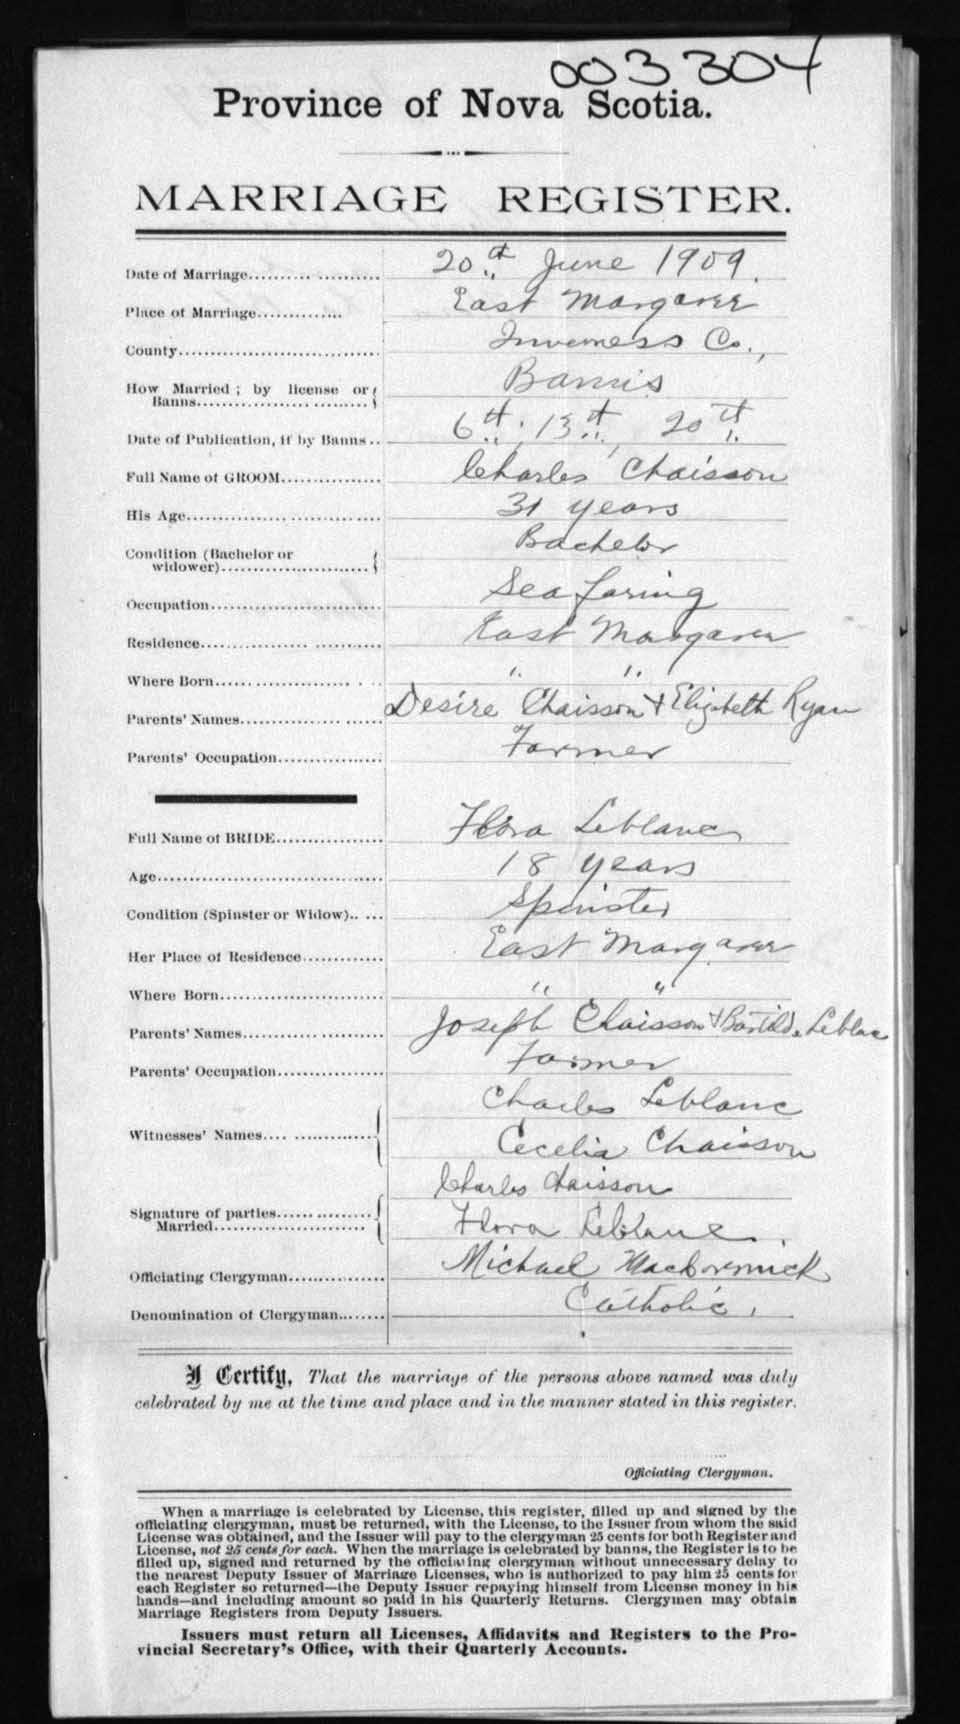 003304
Province of Nova Scotia.
MARRIAGE REGISTER.
Date of Marriage 20th June 1909.
Place of Marriage East Margaree
County Inverness Co.,
How Married; by license or Banns Banns
Date of Publication, if by Banns 6th, 13th, 20th
Full Name of GROOM Charles Chaisson
His Age 31 years
Condition (Bachelor or widower) Bachelor
Occupation Sea faring
Residence East Margaree
Where Born " "
Parents' Names Desire Chaisson & Elizabeth Ryan
Parents' Occupation Farmer
Full Name of BRIDE Flora Leblanc
Age 18 years
Condition (Spinster or Widow) Spinster
Her Place of Residence East Margaree
Where Born " "
Parents' Names Joseph Chaisson & Leblanc
Parents' Occupation Farmer
Witnesses' Names Charles Leblanc
Cecelia Chaisson
Signature of parties Married Charles Chaisson
Flora Leblanc.
Officiating Clergyman Michael MacCormick
Denomination of Clergyman Catholic.
I Certify, That the marriage of the persons above named was duly
celebrated by me at the time and place and in the manner stated in this register.
Officiating Clergyman.
When a marriage is celebrated by License, this register, filled up and signed by the
officiating clergyman, must be returned, with the License, to the Issuer from whom the said
License was obtained, and the Issuer will pay to the clergyman 25 cents for both Register and
License, not 25 cents for each. When the marriage is celebrated by banns, the Register is to be
filled up, signed and returned by the officiating clergyman without unnecessary delay to
the nearest Deputy Issuer of Marriage Licenses, who is authorized to pay him 25 cents for
each Register so returned—the Deputy Issuer repaying himself from License money in his
hands—and including amount so paid in his Quarterly Returns. Clergymen may obtain
Marriage Registers from Deputy Issuers.
Issuers must return all Licenses, Affidavits and Registers to the Pro-
vincial Secretary's Office, with their Quarterly Accounts.